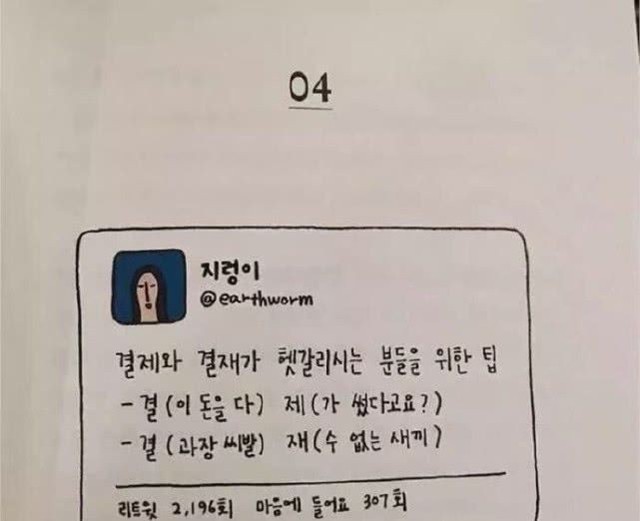 04
지렁이
@earthworm
결제와 결재가 헷갈리시는 분들을 위한 팁
- 결(이 돈을 다) 제(가 썼다고요?)
- 결(과장 씨발) 재(수 없는 새끼)
리트윗 2,196회 마음에 들어요 307회